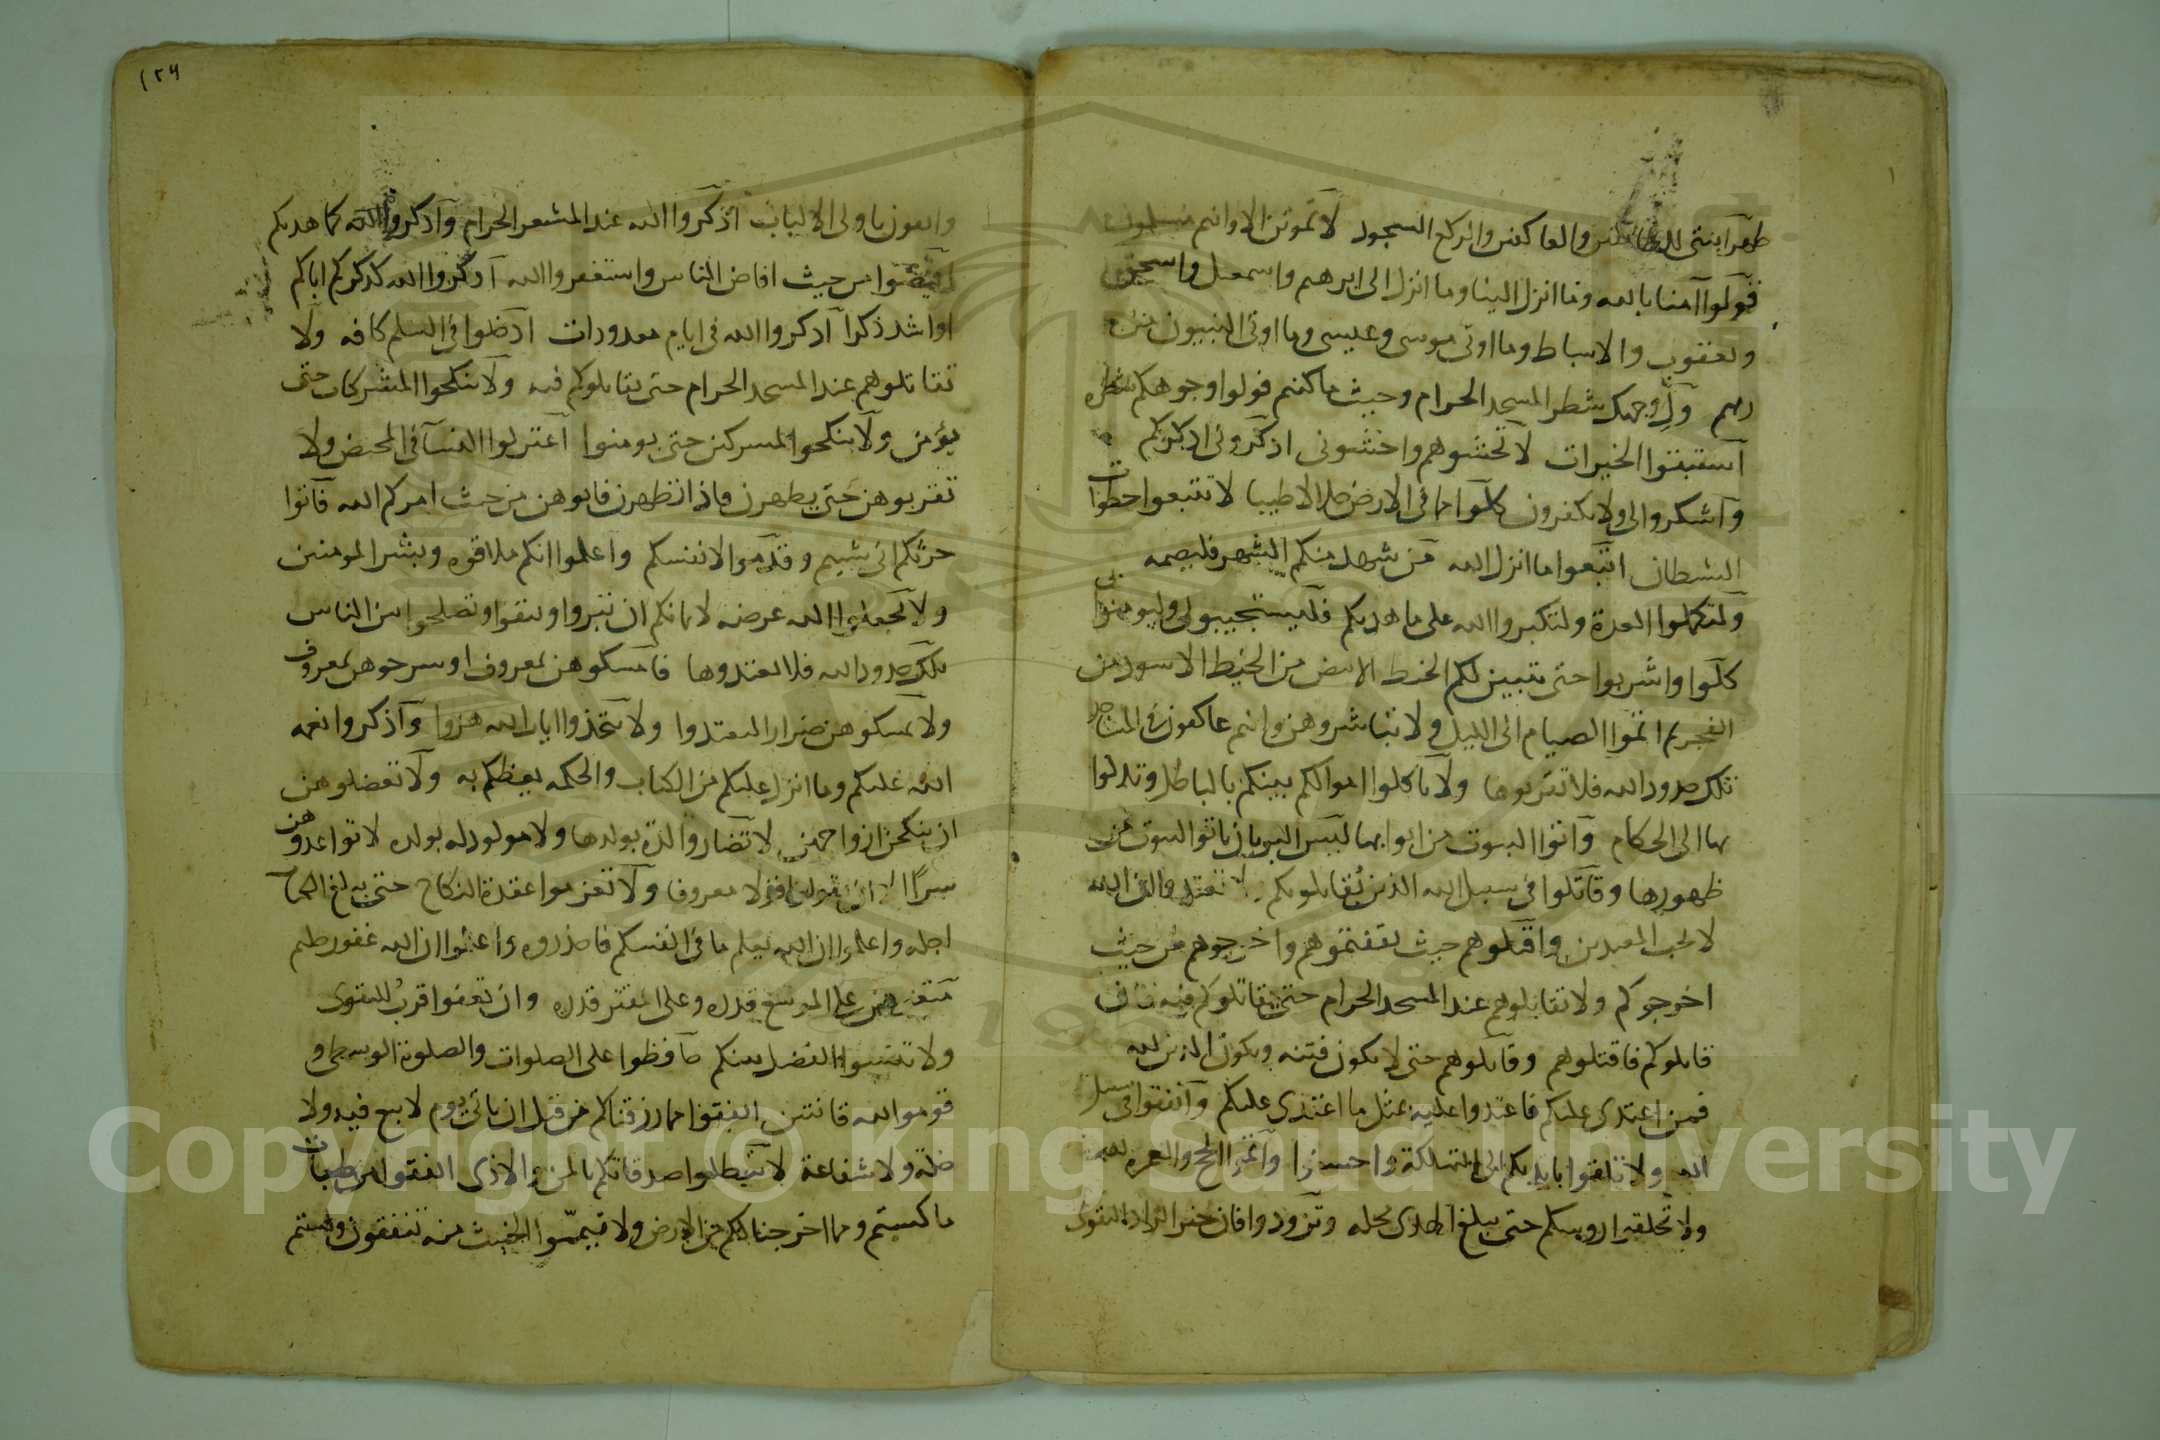 طهرا بيتي للطائفين والعاكفين والركع السجود لا تموتن الا وانتم مسلمون
قولوا آمنا بالله وما انزل الينا وما انزل الى ابرهيم واسمعيل واسحق
ويعقوب والاسباط وما اوتى موسى وعيسى وما اوتى النبيون من
ربهم ولّ وجهك شطر المسجد الحرام وحيث ما كنتم فولوا وجوهكم شطره
آستبقوا الخيرات لا تخشوهم واخشونى اذكرونى اذكركم
وآشكروا لى ولا تكفرون كلوا مما في الارض حلالا طيبا لا تتبعوا خطوات
الشيطان اتبعوا ما انزل الله من شهد منكم الشهر فليصمه
ولتكملوا العدة ولتكبروا الله على ما هديكم فليستجيبوا لى وليومنوا بى
كلوا واشربوا حتى يتبين لكم الخيط الابيض من الخيط الاسود من
الفجر ثم اتموا الصيام الى الليل ولا تباشروهن وانتم عاكفون في المساجد
تلك حدود الله فلا تقربوها ولا تاكلوا اموالكم بينكم بالباطل وتدلوا
بها الى الحكام وآتوا البيوت من ابوابها ليس البر بان ياتوا البيوت من
ظهورها وقاتلوا في سبيل الله الذين يُقاتلونكم لا تعتدوا ان الله
لا يحب المعتدين واقتلوهم حيث ثقفتموهم واخرجوهم من حيث
اخرجوكم ولا تقاتلوهم عند المسجد الحرام حتى يقاتلوكم فيه فان
قاتلوكم فاقتلوهم وقاتلوهم حتى لا تكون فتنه ويكون الدين لله
فمن اعتدى عليكم فاعتدوا عليه بمثل ما اعتدى عليكم وآنفقوا في سبيل
الله ولا تلقوا بايديكم الى التهلكة واحسنوا وآتموا الحج والعمره لله
ولا تحلقوا روسكم حتى يبلغ الهدى محله وتزودوا فان خير الزاد التقوى
١٢٦
واتقون ياولى الالباب آذكروا الله عند المشعر الحرام وآذكروا الله كما هديكم
افيضوا من حيث افاض الناس واستغفروا الله آذكروا الله كذكركم اباكم
او اشد ذكرا آذكروا الله في ايام معدودات ادخلوا في السلم كافه ولا
تقاتلوهم عند المسجد الحرام حتى يقاتلوكم فيه ولا تنكحوا المشركات حتى
يؤمن ولا تنكحوا المشركين حتى يومنوا آعتزلوا النسآ في المحيض ولا
تقربوهن حتى يطهرن فاذا تطهرن فاتوهن من حيث امركم الله فآتوا
حرثكم انى شيتم وقدموا لانفسكم واعلموا انكم ملاقوه وبشر المومنين
ولا تجعلوا الله عرضه لايمانكم ان تبروا وتتقوا وتصلحوا بين الناس
تلك حدود الله فلا تعتدوها فامسكوهن بمعروف او سرحوهن بمعروف
ولا تمسكوهن ضرارا لتعتدوا ولا تتخذوا ايات الله هزوا وآذكروا نعمه
الله عليكم وما انزل عليكم من الكتاب والحكمه يعظكم به ولا تعضلوهن
ان ينكحن ازواجهن لا تضار والدة بولدها ولا مولود له بولده لا تواعدوهن
سرًا الا ان تقولوا قولا معروفا ولا تعزموا عقدة النكاح حتى يبلغ الكتاب
اجله واعلموا ان الله يعلم ما في انفسكم فاحذروه واعلموا ان الله غفور حليم
متعوهن على الموسع قدره وعلى المقتر قدره وان تعفوا اقربُ للتقوى
ولا تنسوا الفضل بينكم حافظوا على الصلوات والصلوة الوسطى و
قوموا لله قانتين انفقوا مما رزقناكم من قبل ان ياتى يوم لا بيع فيه ولا
خلة ولا شفاعة لا تبطلوا صدقاتكم بالمن والاذى انفقوا من طيبات
ما كسبتم ومما اخرجنا لكم من الارض ولا تيمموا الخبيث منه تنفقون ولستم
Copyright © King Saud University